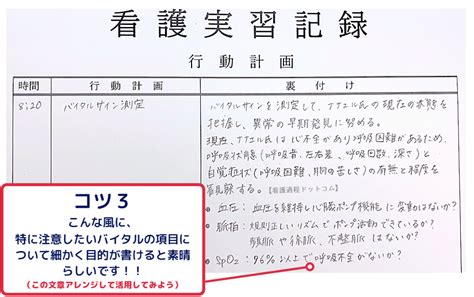 看護実習記録
行動計画
時間 行動計画 裏付け
8:20 バイタルサイン測定 バイタルサインを測定して、ナナエル氏の現在の状態を
把握し、異常の早期発見に努める。
現在、ナナエル氏は心不全があり呼吸困難があるため、
呼吸状態(呼吸音、左右差、呼吸回数、深さ)と
自覚症状(呼吸困難感、胸の苦しさ)の有無と程度を
観察する。【看護過程ドットコム】
・血圧:血圧を維持し心臓ポンプ機能に変動はないか?
・脈拍:規則正しいリズムでポンプ活動できているか?
頻脈や徐脈、不整脈はないか?
・SpO2:96%以上で呼吸不全がないか?
コツ3
こんな風に、
特に注意したいバイタルの項目に
ついて細かく目的が書けると素晴
らしいです!!
(この文章アレンジして活用してみよう)